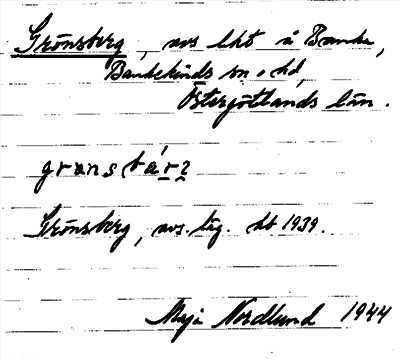 Grönsberg, avs lht å Banka,
Bankekinds sn o hd,
Östergötlands län.
grønsbær̲ʒ
Grönsberg, avs. läg. hb 1939.
Maja Nordlund 1944